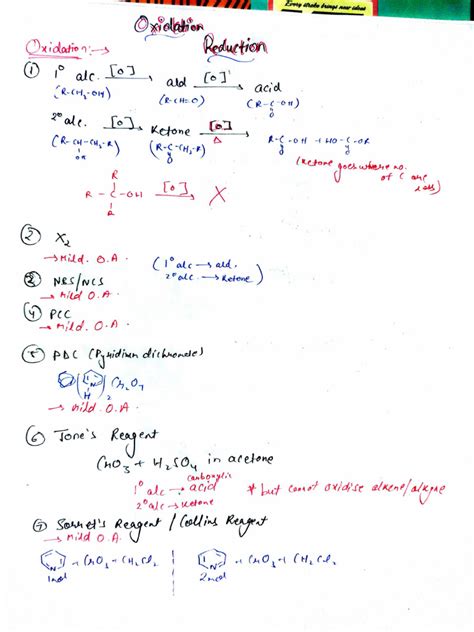 Every stroke brings new ideas
Oxidation
Reduction
Oxidation:→
① 1° alc. [O]→ ald [O]'→ acid
(R-CH₂-OH) (R-CH=O) (R-C-OH)
O
2° alc. [O]→ Ketone [O]→ Δ
(R-CH-CH₂-R) (R-C-CH₂-R) R-C-OH + HO-C-OR
OH O O O
(Ketone goes where no. of C are less)
R
R-C-OH [O]→ X
R
② X₂
→ Mild. O.A.
(1° alc → ald.
2° alc → Ketone)
③ NBS/NCS
→ Mild O.A.
④ PCC
→ Mild. O.A.
⑤ PDC (Pyridium dichromate)
(N H)₂ Cr₂O₇
→ mild. O.A.
⑥ Jone's Reagent
CrO₃ + H₂SO₄ in acetone
1° alc → carboxylic acid
2° alc → Ketone
* but cannot oxidise alkene/alkyne
⑦ Sarret's Reagent / Collins Reagent
→ Mild O.A.
N + CrO₃ + CH₂Cl₂
1mol
N + CrO₃ + CH₂Cl₂
2mol